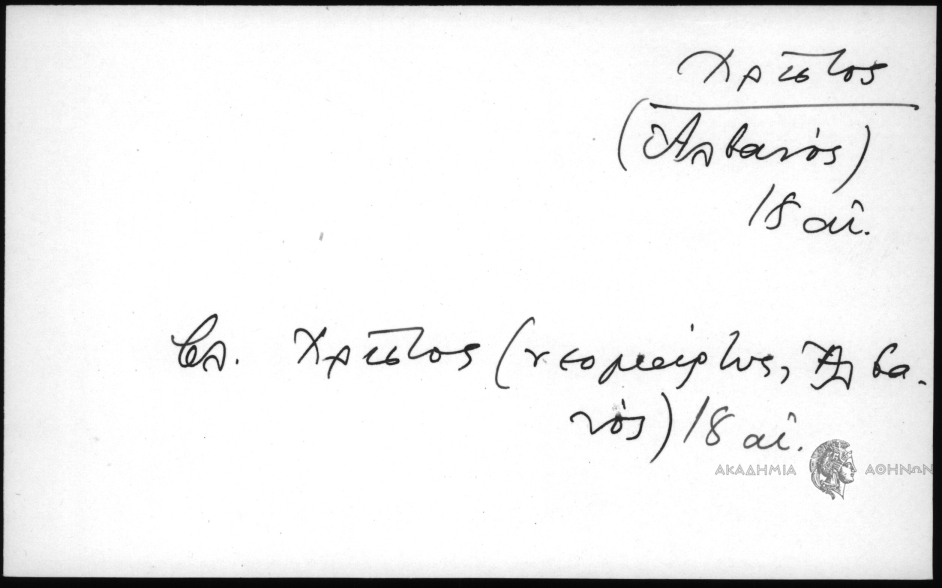 Χρῖστος
(Ἀρβανός)
18 αἰ.
βλ. Χρῖστος (νεομάρτυς, Ἀρβα-
νός) 18 αἰ.
ΑΚΑΔΗΜΙΑ ΑΘΗΝΩΝ